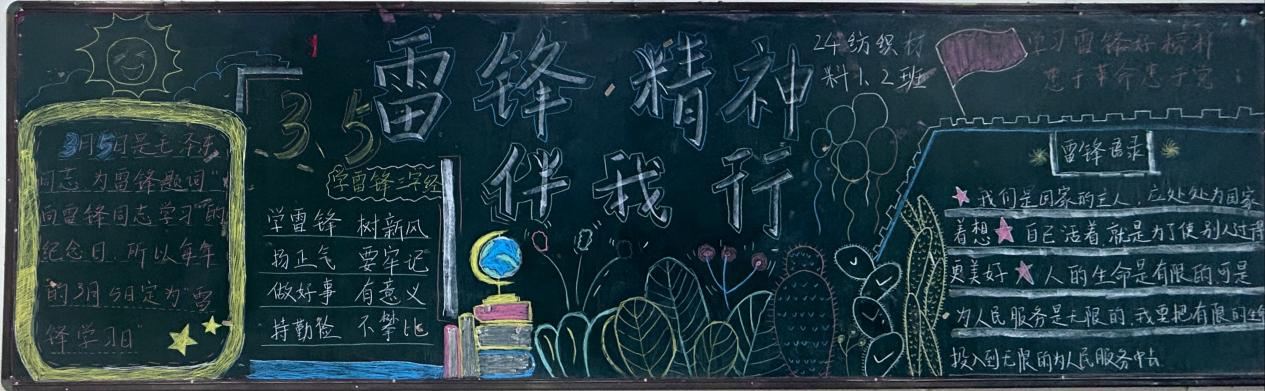 雷锋精神
伴我行
3.5
24纺织材
料1.2班
学习雷锋好榜样
忠于革命忠于党
3月5日是毛泽东
同志为雷锋题词"
向雷锋同志学习"的
纪念日,所以每年
的3月5日定为"雷
锋学习日"
学雷锋三字经
学雷锋 树新风
扬正气 要牢记
做好事 有意义
持勤俭 不攀比
雷锋语录
我们是国家的主人,应处处为国家
着想 自己活着就是为了使别人过得
更美好 人的生命是有限的可是
为人民服务是无限的,我要把有限的生命
投入到无限的为人民服务中去